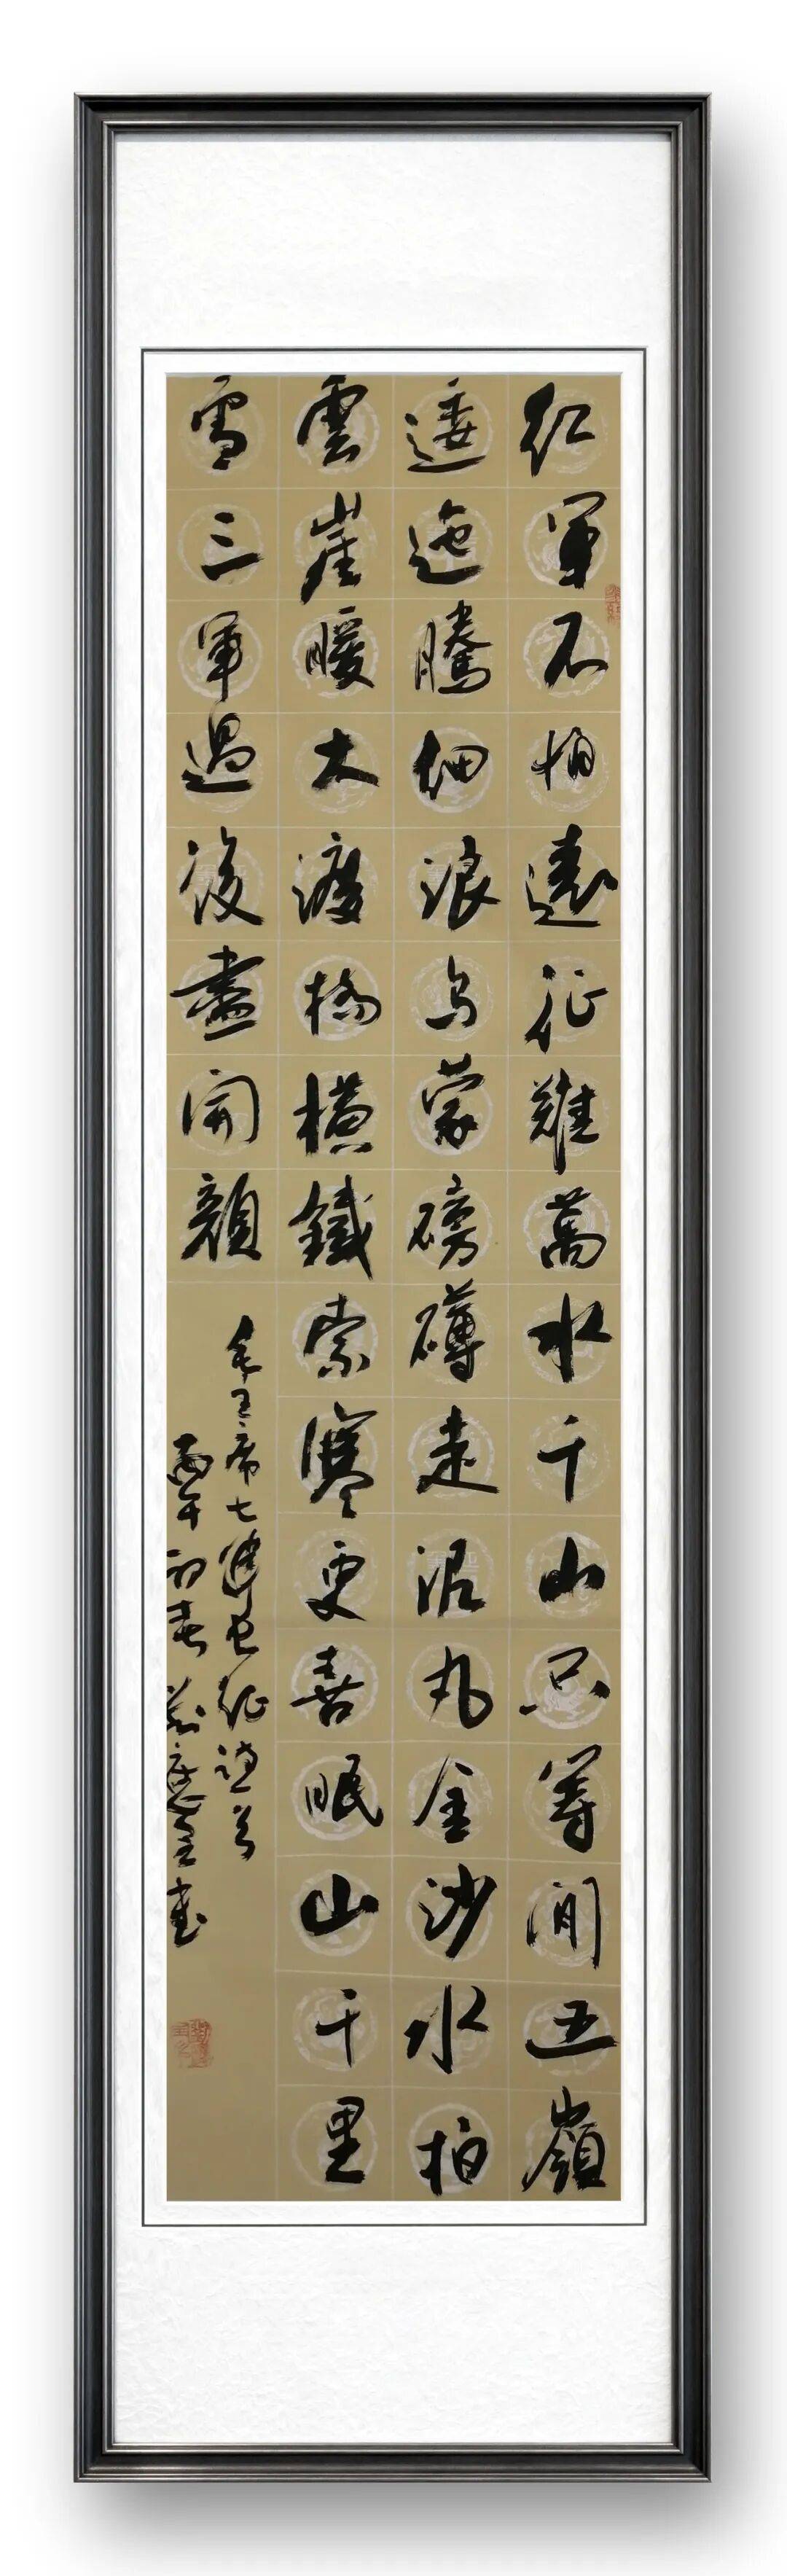 紅軍不怕遠征難萬水千山只等閒五嶺
逶迤騰細浪烏蒙磅礴走泥丸金沙水拍
雲崖暖大渡橋橫鐵索寒更喜眠山千里
雪三軍過後盡開顏
毛主席七律長征詩首
丙午初春書